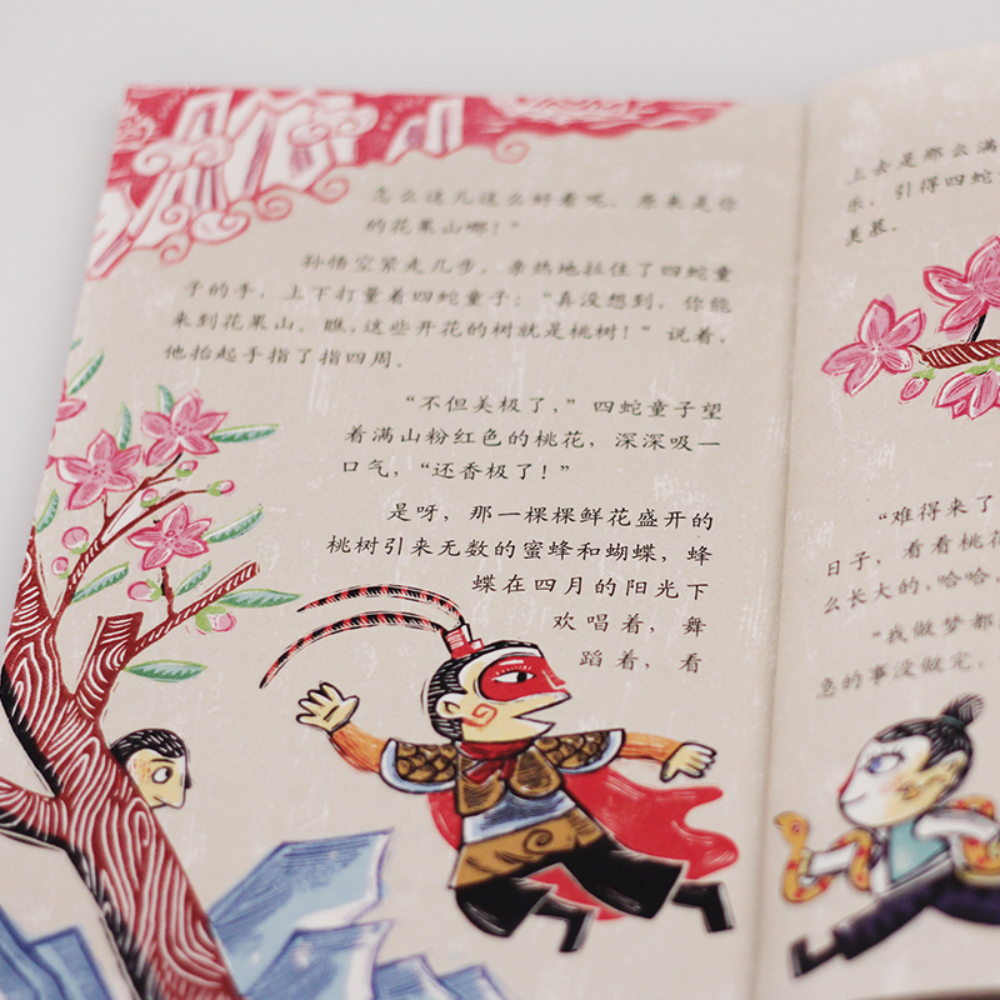 怎么这儿这么好看呢，原来是你
的花果山哪！”
孙悟空紧走几步，亲热地拉住了四蛇童
子的手，上下打量着四蛇童子：“真没想到，你能
来到花果山。瞧，这些开花的树就是桃树！”说着，
他抬起手指了指四周。
“不但美极了，”四蛇童子望
着满山粉红色的桃花，深深吸一
口气，“还香极了！”
是呀，那一棵棵鲜花盛开的
桃树引来无数的蜜蜂和蝴蝶，蜂
蝶在四月的阳光下
欢唱着，舞
蹈着，看
上去是那么满
乐，引得四蛇
羡慕。
“难得来了
日子，看看桃花
么长大的，哈哈
“我做梦都
急的事没做完，